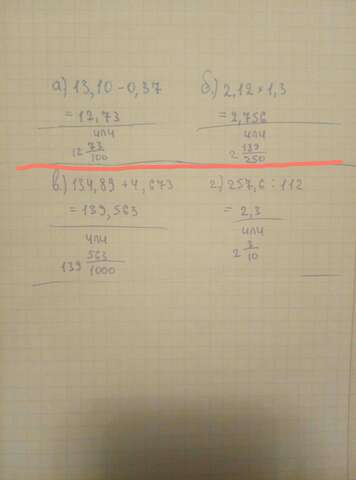 а) 13,10 - 0,37
= 12,73
или
12 73/100
б) 2,12 × 1,3
= 2,756
или
2 139/250
в) 134,89 + 4,673
= 139,563
или
139 563/1000
г) 257,6 : 112
= 2,3
или
2 3/10